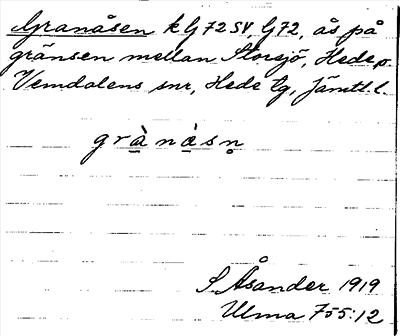 Granåsen k G 72 SV, G 72, ås på
gränsen mellan Storsjö, Hede o.
Vemdalens snr, Hede tg, Jämtl. l.
grànàsn̥
S. Åsander 1919
Ulma 755:12